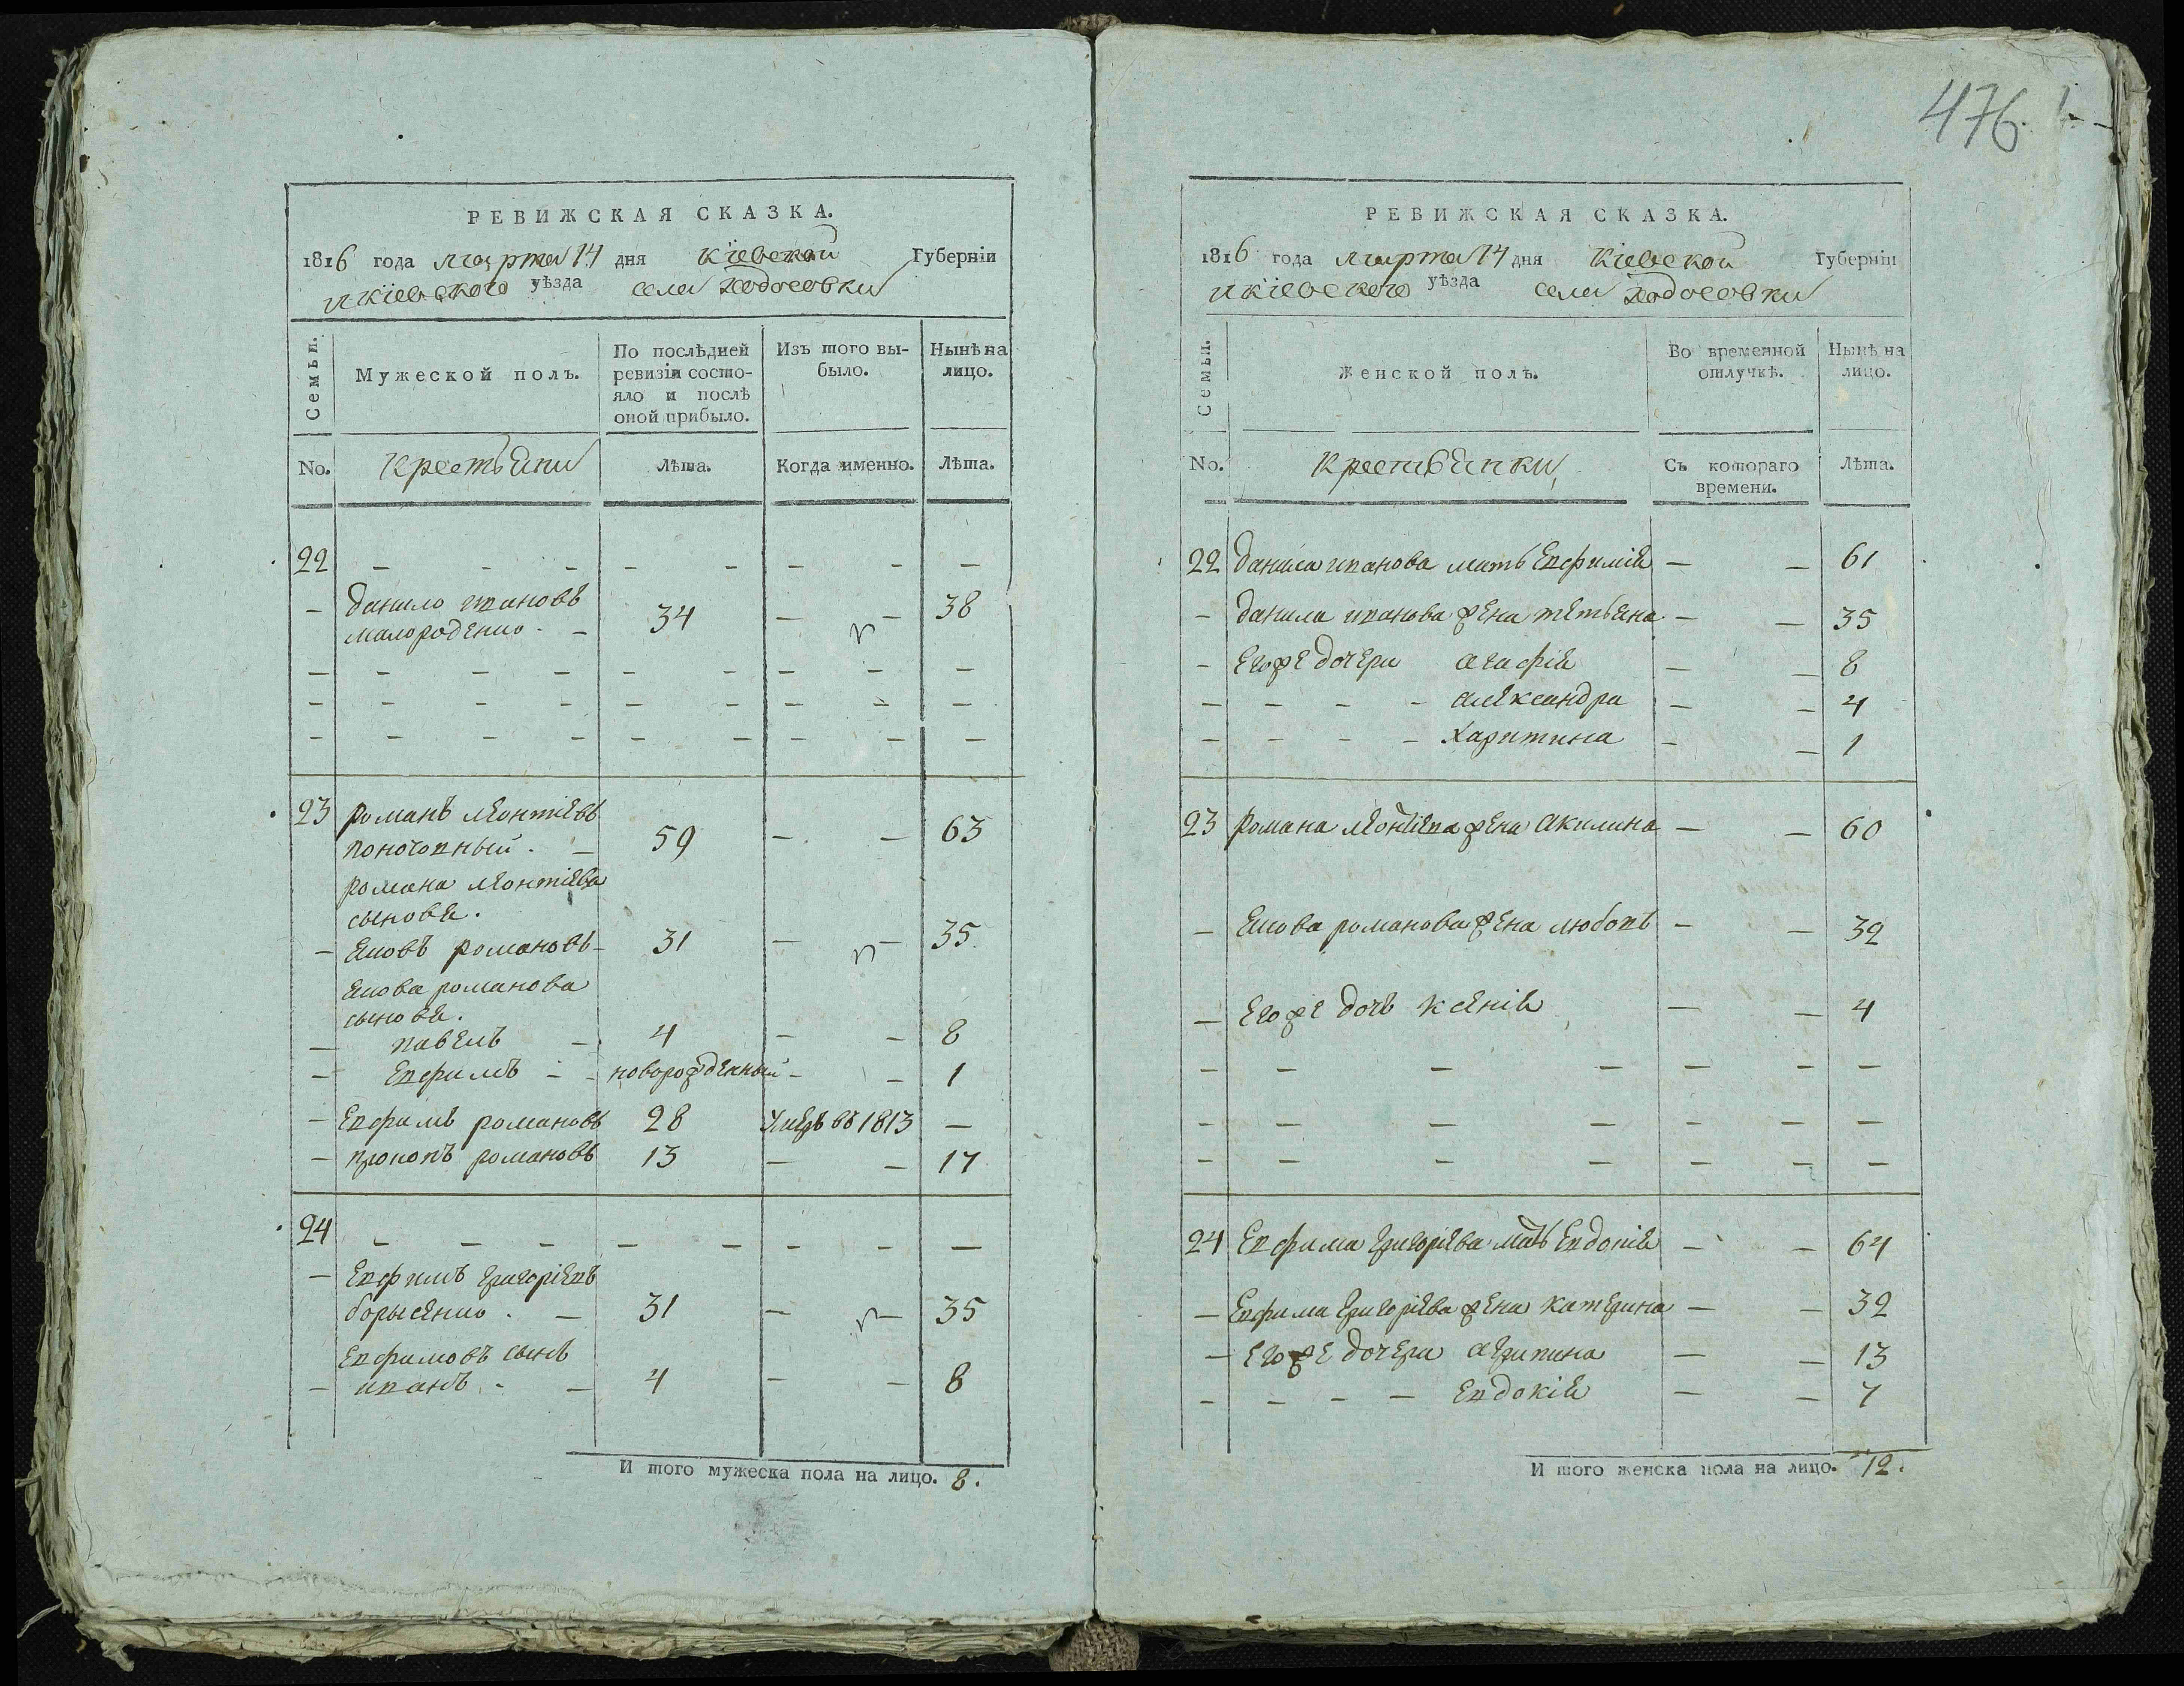 476
РЕВИЖСКАЯ СКАЗКА.
1816 года марта 14 дня Кіевской Губерніи
и кіевского уѣзда села Ходосовки
Семьи.
Мужеской полъ.
По послѣдней ревизіи состояло и послѣ оной прибыло.
Изъ того выбыло.
Нынѣ на лицо.
No. крестьяни Лѣта. Когда именно. Лѣта.
22 — — — — — — — —
— данило ивановъ
малороденко — 34 — — 38
— — — — — — — — —
— — — — — — — — —
— — — — — — — — —
23 романъ леонтіевъ
поночовный — 59 — — 63
романа леонтіева
сыновя.
— яковъ романовъ — 31 — — 35
якова романова
сыновя.
— павелъ — 4 — — 8
— Евфимъ — новорожденный — — 1
— Евфимъ романовъ 28 Умеръ въ 1813 —
— прокопъ романовъ 13 — — 17
24 — — — — — — — —
— Евфимъ григоріевъ
борысенко — 31 — — 35
Евфимовъ сынъ
— иванъ — 4 — — 8
И того мужеска пола на лицо. 8.
РЕВИЖСКАЯ СКАЗКА.
1816 года марта 14 дня Кіевской Губерніи
и кіевского уѣзда села Ходосовки
Семьи.
Женской полъ.
Во временной отлучкѣ.
Нынѣ на лицо.
No. крестьянки Съ котораго времени. Лѣта.
22 данила иванова мать Евфимія — — 61
— данила иванова жена тетьяна — — 35
— Егоже дочери агафія — — 8
— — — — александра — — 4
— — — — Харитина — — 1
23 романа леонтіева жена акилина — — 60
— якова романова жена любовь — — 32
— Егоже дочь ксенія — — 4
— — — — — — —
— — — — — — —
— — — — — — —
24 Евфима григоріева мать Евдокія — — 64
— Евфима григоріева жена катерина — — 32
— Егоже дочери агрипина — — 13
— — — — Евдокія — — 7
И того женска пола на лицо. 12.